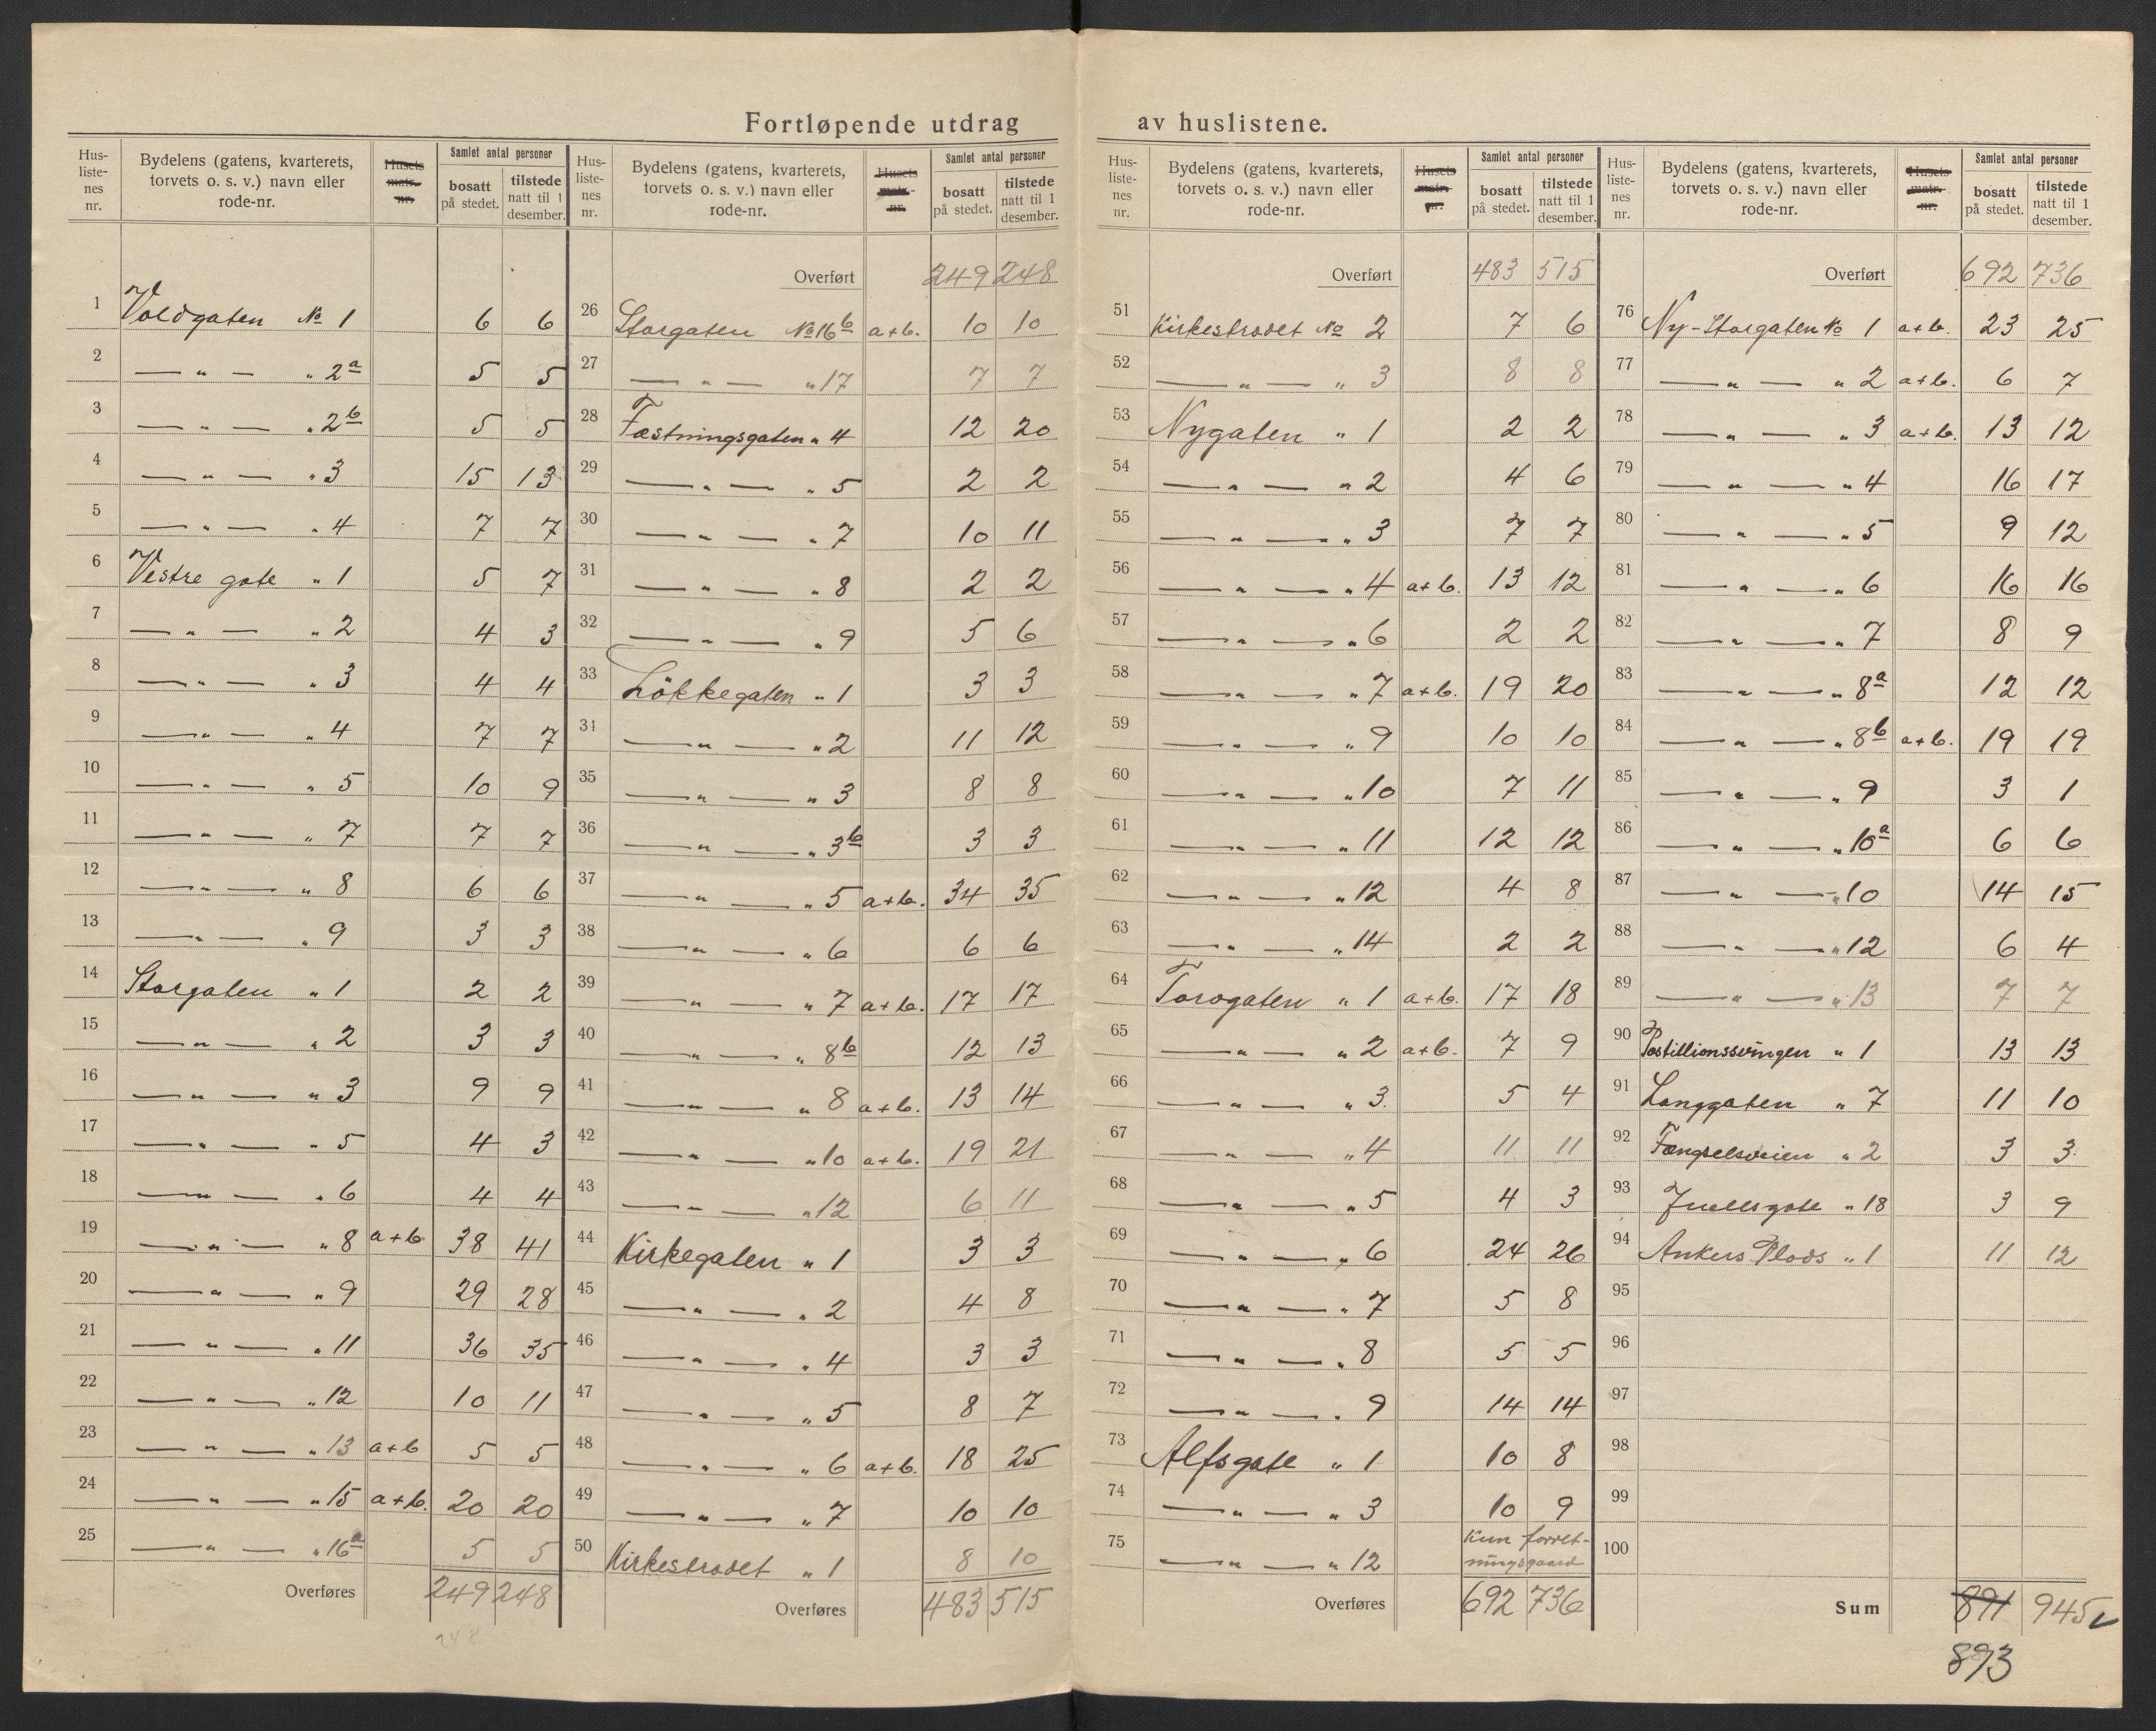 Fortløpende utdrag av huslistene.
Hus-listenes nr. | Bydelens (gatens, kvarterets, torvets o. s. v.) navn eller rode-nr. | Husets matr.-nr. | Samlet antal personer bosatt på stedet. | tilstede natt til 1 desember.
1 Voldgaten № 1 6 6
2 — " — " 2a 5 5
3 — " — " 2b 5 5
4 — " — " 3 15 13
5 — " — " 4 7 7
6 Vestre gate " 1 5 7
7 — " — " 2 4 3
8 — " — " 3 4 4
9 — " — " 4 7 7
10 — " — " 5 10 9
11 — " — " 7 7 7
12 — " — " 8 6 6
13 — " — " 9 3 3
14 Storgaten " 1 2 2
15 — " — " 2 3 3
16 — " — " 3 9 9
17 — " — " 5 4 3
18 — " — " 6 4 4
19 — " — " 8 a+b 38 41
20 — " — " 9 29 28
21 — " — " 11 36 35
22 — " — " 12 10 11
23 — " — " 13 a+b 5 5
24 — " — " 15 a+b. 20 20
25 — " — " 16a 5 5
Overføres 249 248
248
Hus-listenes nr. | Bydelens (gatens, kvarterets, torvets o. s. v.) navn eller rode-nr. | Husets matr.-nr. | Samlet antal personer bosatt på stedet. | tilstede natt til 1 desember.
Overført 249 248
26 Storgaten № 16b a+b. 10 10
27 — " — " 17 7 7
28 Fæstningsgaten " 4 12 20
29 — " — " 5 2 2
30 — " — " 7 10 11
31 — " — " 8 2 2
32 — " — " 9 5 6
33 Lökkegaten " 1 3 3
34 — " — " 2 11 12
35 — " — " 3 8 8
36 — " — " 3b 3 3
37 — " — " 5 a+b. 34 35
38 — " — " 6 6 6
39 — " — " 7 a+b. 17 17
40 — " — " 8b 12 13
41 — " — " 8 a+b. 13 14
42 — " — " 10 a+b. 19 21
43 — " — " 12 6 11
44 Kirkegaten " 1 3 3
45 — " — " 2 4 8
46 — " — " 4 3 3
47 — " — " 5 8 7
48 — " — " 6 a+b. 18 25
49 — " — " 7 10 10
50 Kirkestrædet " 1 8 10
Overføres 483 515
Hus-listenes nr. | Bydelens (gatens, kvarterets, torvets o. s. v.) navn eller rode-nr. | Husets matr.-nr. | Samlet antal personer bosatt på stedet. | tilstede natt til 1 desember.
Overført 483 515
51 Kirkestrædet № 2 7 6
52 — " — " 3 8 8
53 Nygaten " 1 2 2
54 — " — " 2 4 6
55 — " — " 3 7 7
56 — " — " 4 a+b. 13 12
57 — " — " 6 2 2
58 — " — " 7 a+b. 19 20
59 — " — " 9 10 10
60 — " — " 10 7 11
61 — " — " 11 12 12
62 — " — " 12 4 8
63 — " — " 14 2 2
64 Torvgaten " 1 a+b. 17 18
65 — " — " 2 a+b. 7 9
66 — " — " 3. 5 4
67 — " — " 4 11 11
68 — " — " 5 4 3
69 — " — " 6 24 26
70 — " — " 7 5 8
71 — " — " 8 5 5
72 — " — " 9 14 14
73 Alfsgate " 1 10 8
74 — " — " 3 10 9
75 — " — " 12 Kun forretningsgaard
Overføres 692 736
Hus-listenes nr. | Bydelens (gatens, kvarterets, torvets o. s. v.) navn eller rode-nr. | Husets matr.-nr. | Samlet antal personer bosatt på stedet. | tilstede natt til 1 desember.
Overført 692 736
76 Ny-Storgaten № 1 a+b. 23 25
77 — " — " 2 a+b. 6 7
78 — " — " 3 a+b. 13 12
79 — " — " 4 16 17
80 — " — " 5 9 12
81 — " — " 6 16 16
82 — " — " 7 8 9
83 — " — " 8a 12 12
84 — " — " 8b a+b. 19 19
85 — " — " 9 3 1
86 — " — " 10a 6 6
87 — " — " 10 14 15
88 — " — " 12 6 4
89 — " — " 13 7 7
90 Postillionssvingen " 1 13 13
91 Langgaten " 7 11 10
92 Fængselsveien " 2 3 3
93 Juellsgate " 18 3 9
94 Ankers Plads " 1 11 12
95
96
97
98
99
100
Sum 891 945 ✓
893